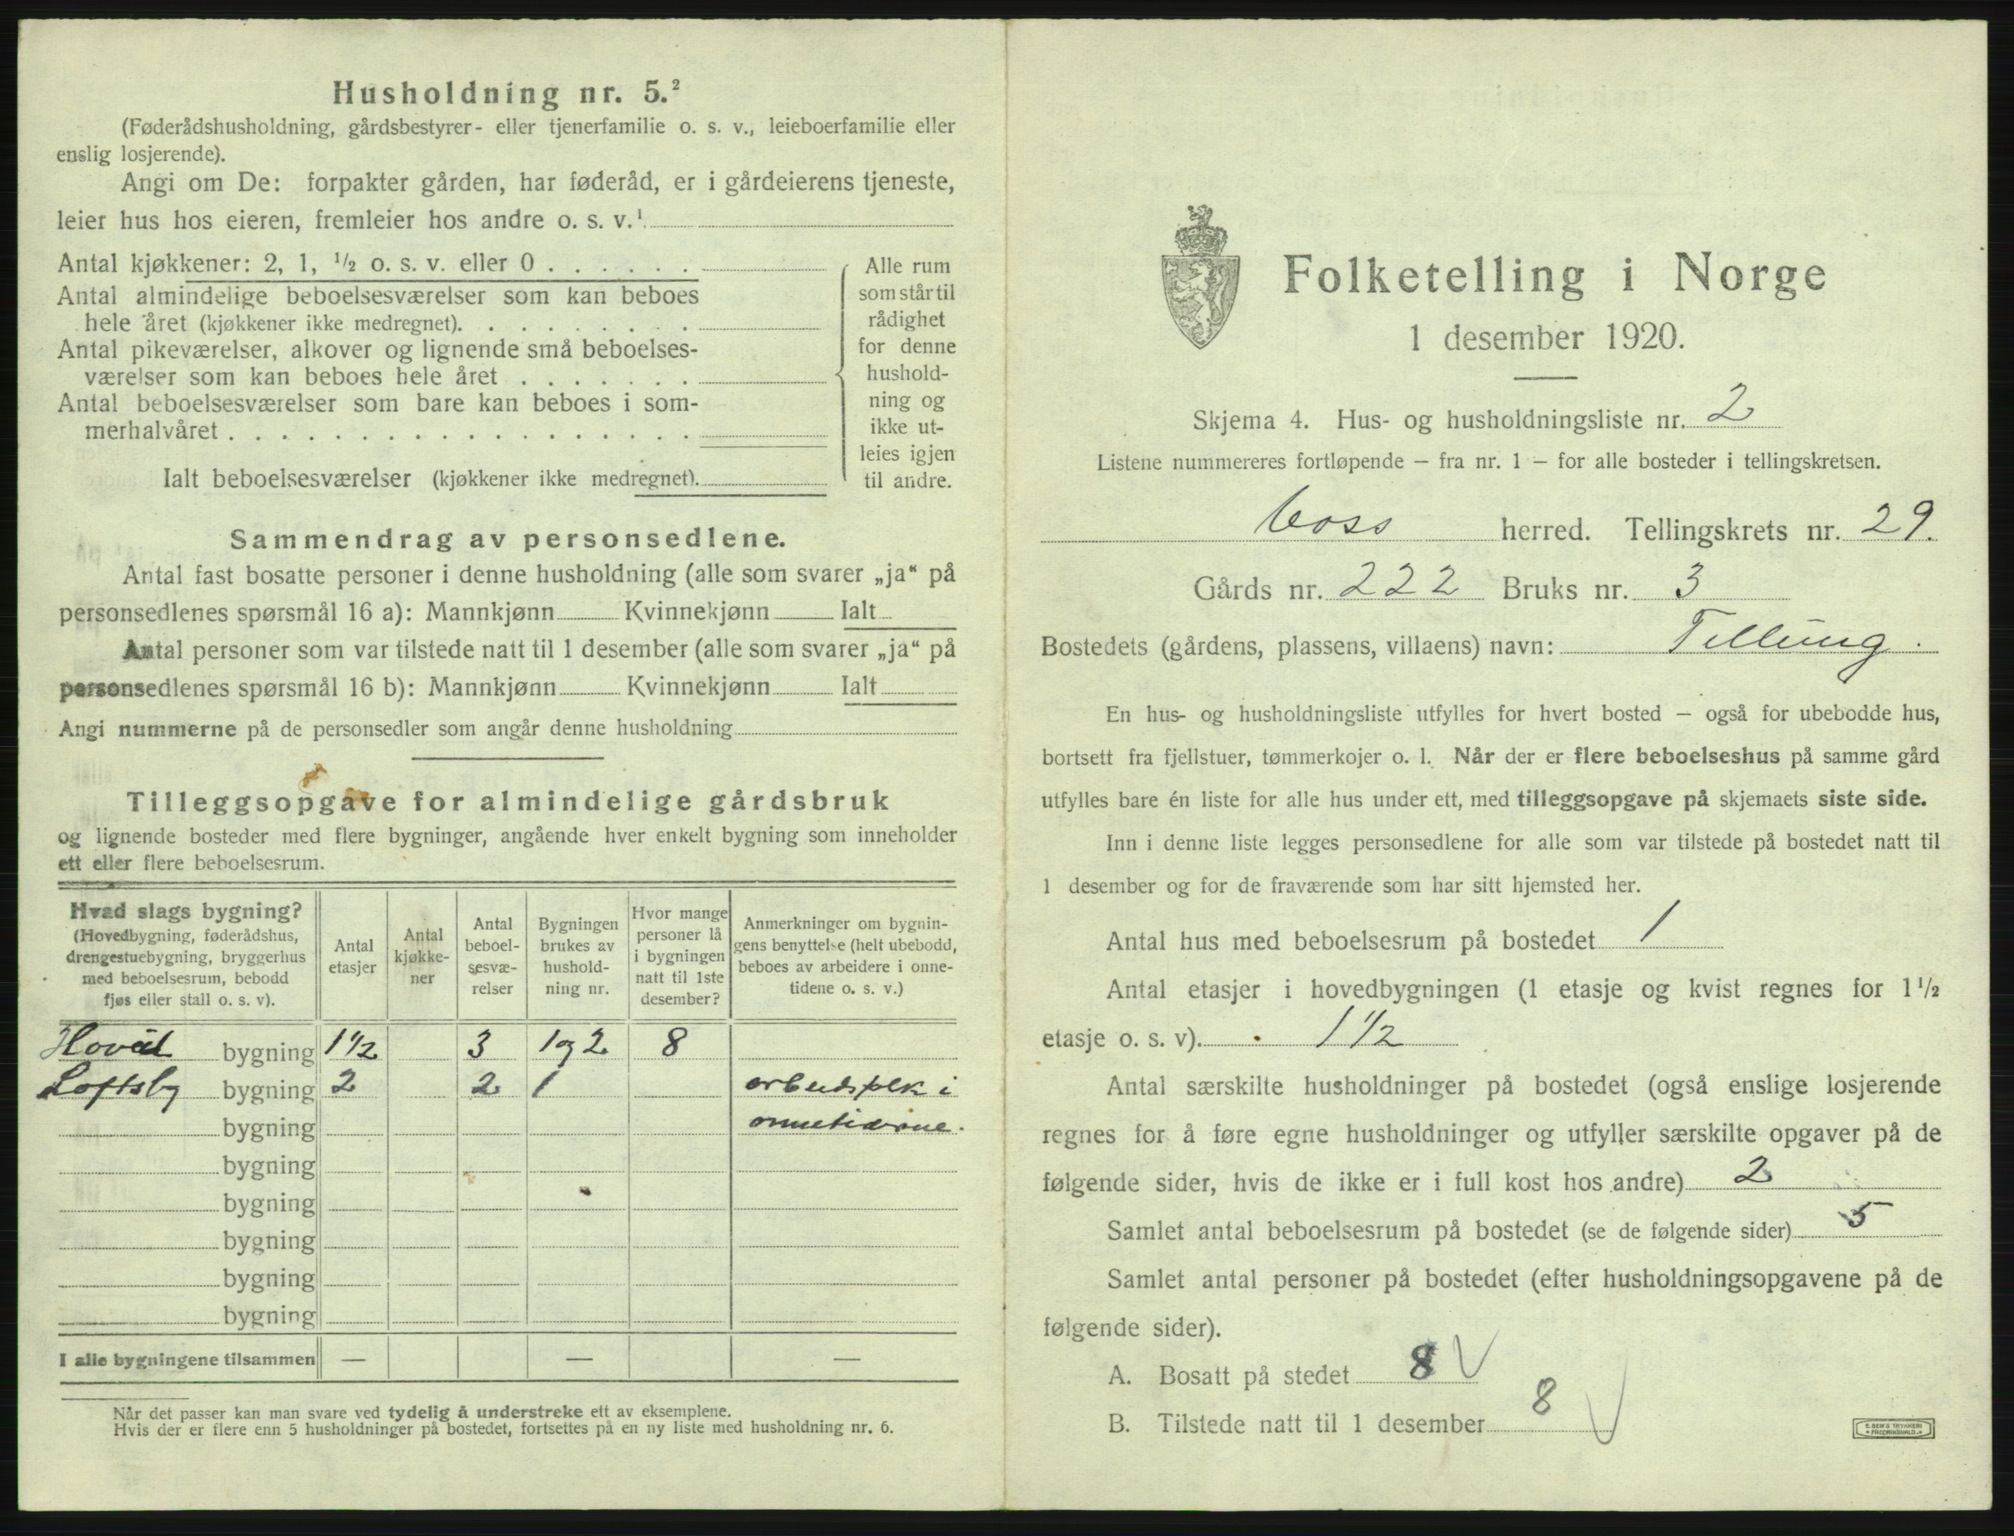 Husholdning nr. 5.²
(Føderådshusholdning, gårdsbestyrer- eller tjenerfamilie o. s. v., leieboerfamilie eller
enslig losjerende).
Angi om De: forpakter gården, har føderåd, er i gårdeierens tjeneste,
leier hus hos eieren, fremleier hos andre o. s. v.¹
Antal kjøkkener: 2, 1, ½ o. s. v. eller 0 . . . . . .
Antal almindelige beboelsesværelser som kan beboes
hele året (kjøkkener ikke medregnet). . . . . . . . .
Antal pikeværelser, alkover og lignende små beboelses-
værelser som kan beboes hele året . . . . . . .
Antal beboelsesværelser som bare kan beboes i som-
merhalvåret . . . . . . . . . . . . . . . . . .
Ialt beboelsesværelser (kjøkkener ikke medregnet).
Alle rum
som står til
rådighet
for denne
hushold-
ning og
ikke ut-
leies igjen
til andre.
Sammendrag av personsedlene.
Antal fast bosatte personer i denne husholdning (alle som svarer „ja“ på
personsedlenes spørsmål 16 a): Mannkjønn Kvinnekjønn Ialt
Antal personer som var tilstede natt til 1 desember (alle som svarer „ja“ på
personsedlenes spørsmål 16 b): Mannkjønn Kvinnekjønn Ialt
Angi nummerne på de personsedler som angår denne husholdning
Tilleggsopgave for almindelige gårdsbruk
og lignende bosteder med flere bygninger, angående hver enkelt bygning som inneholder
ett eller flere beboelsesrum.
Hvad slags bygning?
(Hovedbygning, føderådshus,
drengestuebygning, bryggerhus
med beboelsesrum, bebodd
fjøs eller stall o. s. v).
Antal
etasjer
Antal
kjøkke-
ner
Antal
beboel-
sesvæ-
relser
Bygningen
brukes av
hushold-
ning nr.
Hvor mange
personer lå
i bygningen
natt til 1ste
desember?
Anmerkninger om bygnin-
gens benyttelse (helt ubebodd,
beboes av arbeidere i onne-
tidene o. s. v.)
bygning 1½ 3 1 og 2 8
Loftsby bygning 2 2 1 arbeidsfolk i
bygning onnetiderne.
bygning
bygning
bygning
bygning
bygning
I alle bygningene tilsammen — — —
Når det passer kan man svare ved tydelig å understreke ett av eksemplene.
Hvis der er flere enn 5 husholdninger på bostedet, fortsettes på en ny liste med husholdning nr. 6.
Folketelling i Norge
1 desember 1920.
Skjema 4. Hus- og husholdningsliste nr. 2
Listene nummereres fortløpende — fra nr. 1 — for alle bosteder i tellingskretsen.
Voss herred. Tellingskrets nr. 29.
Gårds nr. 222 Bruks nr. 3
Bostedets (gårdens, plassens, villaens) navn: Tillung.
En hus- og husholdningsliste utfylles for hvert bosted — også for ubebodde hus,
bortsett fra fjellstuer, tømmerkojer o. l. Når der er flere beboelseshus på samme gård
utfylles bare én liste for alle hus under ett, med tilleggsopgave på skjemaets siste side.
Inn i denne liste legges personsedlene for alle som var tilstede på bostedet natt til
1 desember og for de fraværende som har sitt hjemsted her.
Antal hus med beboelsesrum på bostedet 1
Antal etasjer i hovedbygningen (1 etasje og kvist regnes for 1½
etasje o. s. v). 1½
Antal særskilte husholdninger på bostedet (også enslige losjerende
regnes for å føre egne husholdninger og utfyller særskilte opgaver på de
følgende sider, hvis de ikke er i full kost hos andre) 2
Samlet antal beboelsesrum på bostedet (se de følgende sider) 5
Samlet antal personer på bostedet (efter husholdningsopgavene på de
følgende sider).
A. Bosatt på stedet 8
B. Tilstede natt til 1 desember 8